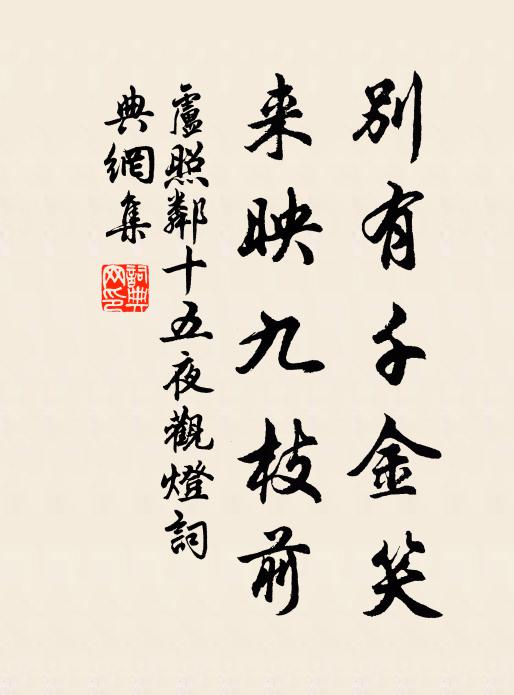 別有千金笑
来映九枝前
盧照鄰十五夜觀燈詞
典網集
詞典網印